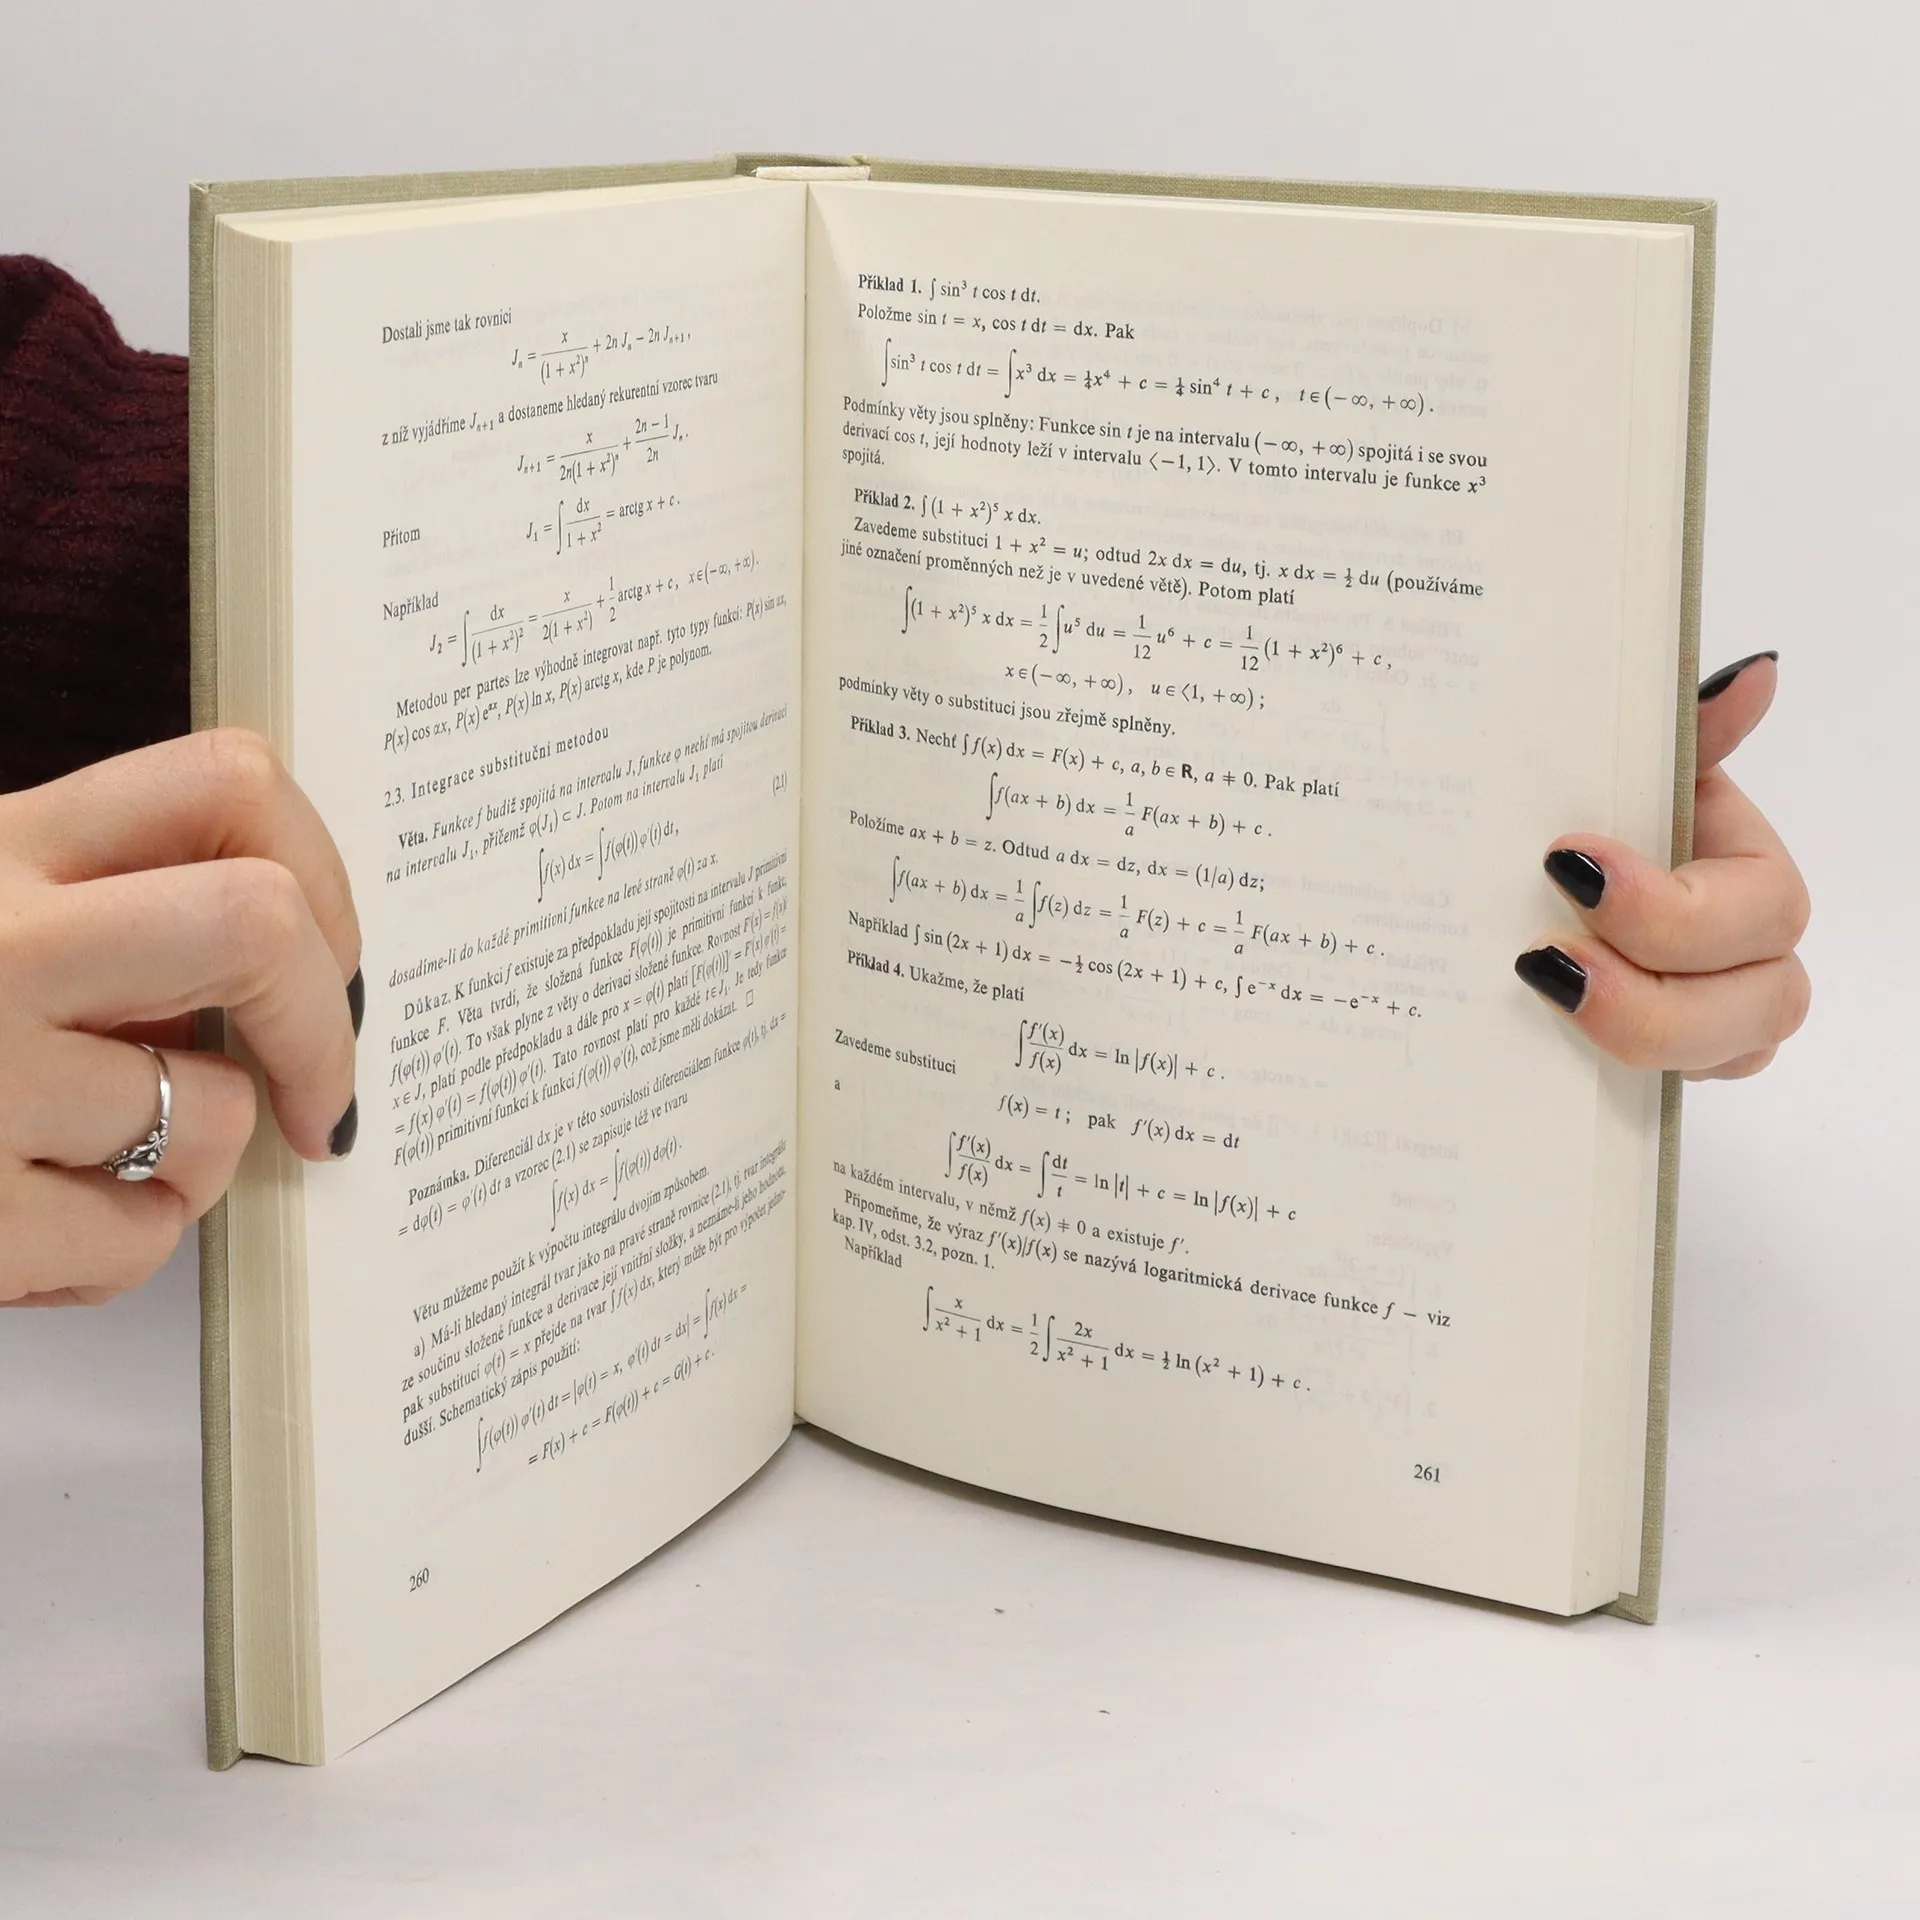 Dostali jsme tak rovnici
J_n = x / (1 + x²)ⁿ + 2n J_n − 2n J_{n+1},
z níž vyjádříme J_{n+1} a dostaneme hledaný rekurentní vzorec tvaru
J_{n+1} = x / 2n(1 + x²)ⁿ + (2n − 1) / 2n J_n.
Přitom J₁ = ∫ dx / (1 + x²) = arctg x + c.
Například
J₂ = ∫ dx / (1 + x²)² = x / 2(1 + x²) + 1/2 arctg x + c, x ∈ (−∞, +∞).
Metodou per partes lze výhodně integrovat např. tyto typy funkcí: P(x) sin αx,
P(x) cos αx, P(x) e^{αx}, P(x) ln x, P(x) arctg x, kde P je polynom.
2.3. Integrace substituční metodou
Věta. Funkce f budiž spojitá na intervalu J, funkce φ nechť má spojitou derivaci
na intervalu J₁, přičemž φ(J₁) ⊂ J. Potom na intervalu J₁ platí
∫ f(x) dx = ∫ f(φ(t)) φ′(t) dt, (2.1)
dosadíme-li do každé primitivní funkce na levé straně φ(t) za x.
Důkaz. K funkci f existuje za předpokladu její spojitosti na intervalu J primitivní
funkce F. Věta tvrdí, že složená funkce F(φ(t)) je primitivní funkcí k funkci
f(φ(t)) φ′(t). To však plyne z věty o derivaci složené funkce. Rovnost F′(x) = f(x),
x ∈ J, platí podle předpokladu a dále pro x = φ(t) platí [F(φ(t))]′ = F′(x) φ′(t) =
= f(x) φ′(t) = f(φ(t)) φ′(t). Tato rovnost platí pro každé t ∈ J₁. Je tedy funkce
F(φ(t)) primitivní funkcí k funkci f(φ(t)) φ′(t), což jsme měli dokázat. □
Poznámka. Diferenciál dx je v této souvislosti diferenciálem funkce φ(t), tj. dx =
= dφ(t) = φ′(t) dt a vzorec (2.1) se zapisuje též ve tvaru
∫ f(x) dx = ∫ f(φ(t)) dφ(t).
Větu můžeme použít k výpočtu integrálu dvojím způsobem.
a) Má-li hledaný integrál tvar jako na pravé straně rovnice (2.1), tj. tvar integrálu
ze součinu složené funkce a derivace její vnitřní složky, a neznáme-li jeho hodnotu,
pak substitucí φ(t) = x přejde na tvar ∫ f(x) dx, který může být pro výpočet jedno-
dušší. Schematický zápis použití:
∫ f(φ(t)) φ′(t) dt = |φ(t) = x, φ′(t) dt = dx| = ∫ f(x) dx =
= F(x) + c = F(φ(t)) + c = G(t) + c.
260
Příklad 1. ∫ sin³ t cos t dt.
Položme sin t = x, cos t dt = dx. Pak
∫ sin³ t cos t dt = ∫ x³ dx = ¼x⁴ + c = ¼ sin⁴ t + c, t ∈ (−∞, +∞).
Podmínky věty jsou splněny: Funkce sin t je na intervalu (−∞, +∞) spojitá i se svou
derivací cos t, její hodnoty leží v intervalu ⟨−1, 1⟩. V tomto intervalu je funkce x³
spojitá.
Příklad 2. ∫ (1 + x²)⁵ x dx.
Zavedeme substituci 1 + x² = u; odtud 2x dx = du, tj. x dx = ½ du (používáme
jiné označení proměnných než je v uvedené větě). Potom platí
∫ (1 + x²)⁵ x dx = 1/2 ∫ u⁵ du = 1/12 u⁶ + c = 1/12 (1 + x²)⁶ + c,
x ∈ (−∞, +∞), u ∈ ⟨1, +∞);
podmínky věty o substituci jsou zřejmě splněny.
Příklad 3. Nechť ∫ f(x) dx = F(x) + c, a, b ∈ R, a ≠ 0. Pak platí
∫ f(ax + b) dx = 1/a F(ax + b) + c.
Položíme ax + b = z. Odtud a dx = dz, dx = (1/a) dz;
∫ f(ax + b) dx = 1/a ∫ f(z) dz = 1/a F(z) + c = 1/a F(ax + b) + c.
Například ∫ sin (2x + 1) dx = −½ cos (2x + 1) + c, ∫ e⁻ˣ dx = −e⁻ˣ + c.
Příklad 4. Ukažme, že platí
∫ f′(x)/f(x) dx = ln |f(x)| + c.
Zavedeme substituci
f(x) = t; pak f′(x) dx = dt
a
∫ f′(x)/f(x) dx = ∫ dt/t = ln |t| + c = ln |f(x)| + c
na každém intervalu, v němž f(x) ≠ 0 a existuje f′.
Připomeňme, že výraz f′(x)/f(x) se nazývá logaritmická derivace funkce f – viz
kap. IV, odst. 3.2, pozn. 1.
Například
∫ x/(x² + 1) dx = 1/2 ∫ 2x/(x² + 1) dx = ½ ln (x² + 1) + c.
261